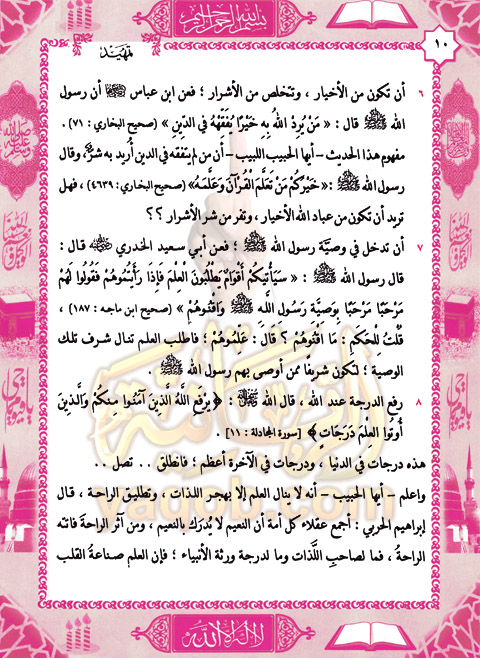 بسم الله الرحمن الرحيم
١٠
تمهيد
٦ أن تكون من الأخيار ، وتتخلص من الأشرار ؛ فعن ابن عباس رضي الله عنهما أن رسول
الله ﷺ قال : « مَنْ يُرِدْ اللهُ بِهِ خَيْرًا يُفَقِّهْهُ فِي الدِّينِ » (صحيح البخاري : ٧١) .
مفهوم هذا الحديث – أيها الحبيب اللبيب – أن من لم يتفقه في الدين أُريد به شرٌّ، وقال
رسول الله ﷺ : « خَيْرُكُمْ مَنْ تَعَلَّمَ الْقُرْآنَ وَعَلَّمَهُ » (صحيح البخاري : ٤٦٣٩) ، فهل
تريد أن تكون من عباد الله الأخيار ، وتفر من شر الأشرار ؟؟
٧ أن تدخل في وصيَّة رسول الله ﷺ ؛ فعن أبي سعيد الخدري رضي الله عنه قال :
قال رسول الله ﷺ : « سَيَأْتِيكُمْ أَقْوَامٌ يَطْلُبُونَ الْعِلْمَ فَإِذَا رَأَيْتُمُوهُمْ فَقُولُوا لَهُمْ
مَرْحَبًا مَرْحَبًا بِوَصِيَّةِ رَسُولِ اللَّهِ ﷺ وَاقْنُوهُمْ » (صحيح ابن ماجه : ١٨٧) ،
قُلْتُ لِلْحَكَمِ : مَا اقْنُوهُمْ ؟ قَالَ : عَلِّمُوهُمْ ؛ فاطلب العلم تنال شرف تلك
الوصية ؛ لتكون شريفًا ممن أوصى بهم رسول الله ﷺ .
٨ رفع الدرجة عند الله ، قال الله : ﴿ يَرْفَعِ اللَّهُ الَّذِينَ آمَنُوا مِنكُمْ وَالَّذِينَ
أُوتُوا الْعِلْمَ دَرَجَاتٍ ﴾ [سورة المجادلة : ١١] .
هذه درجات في الدنيا ، ودرجات في الآخرة أعظم ؛ فانطلق . . تصل . .
واعلم – أيها الحبيب – أنه لا ينال العلم إلا بهجر اللذات ، وتطليق الراحة ، قال
إبراهيم الحربي : أجمع عقلاء كل أمة أن النعيم لا يُدرَك بالنعيم ، ومن آثر الراحة فاتته
الراحةُ ، فما لصاحبِ اللَّذات وما لدرجة ورثة الأنبياء ؛ فإن العلم صناعةُ القلب
yaqob.com
لا إله إلا الله